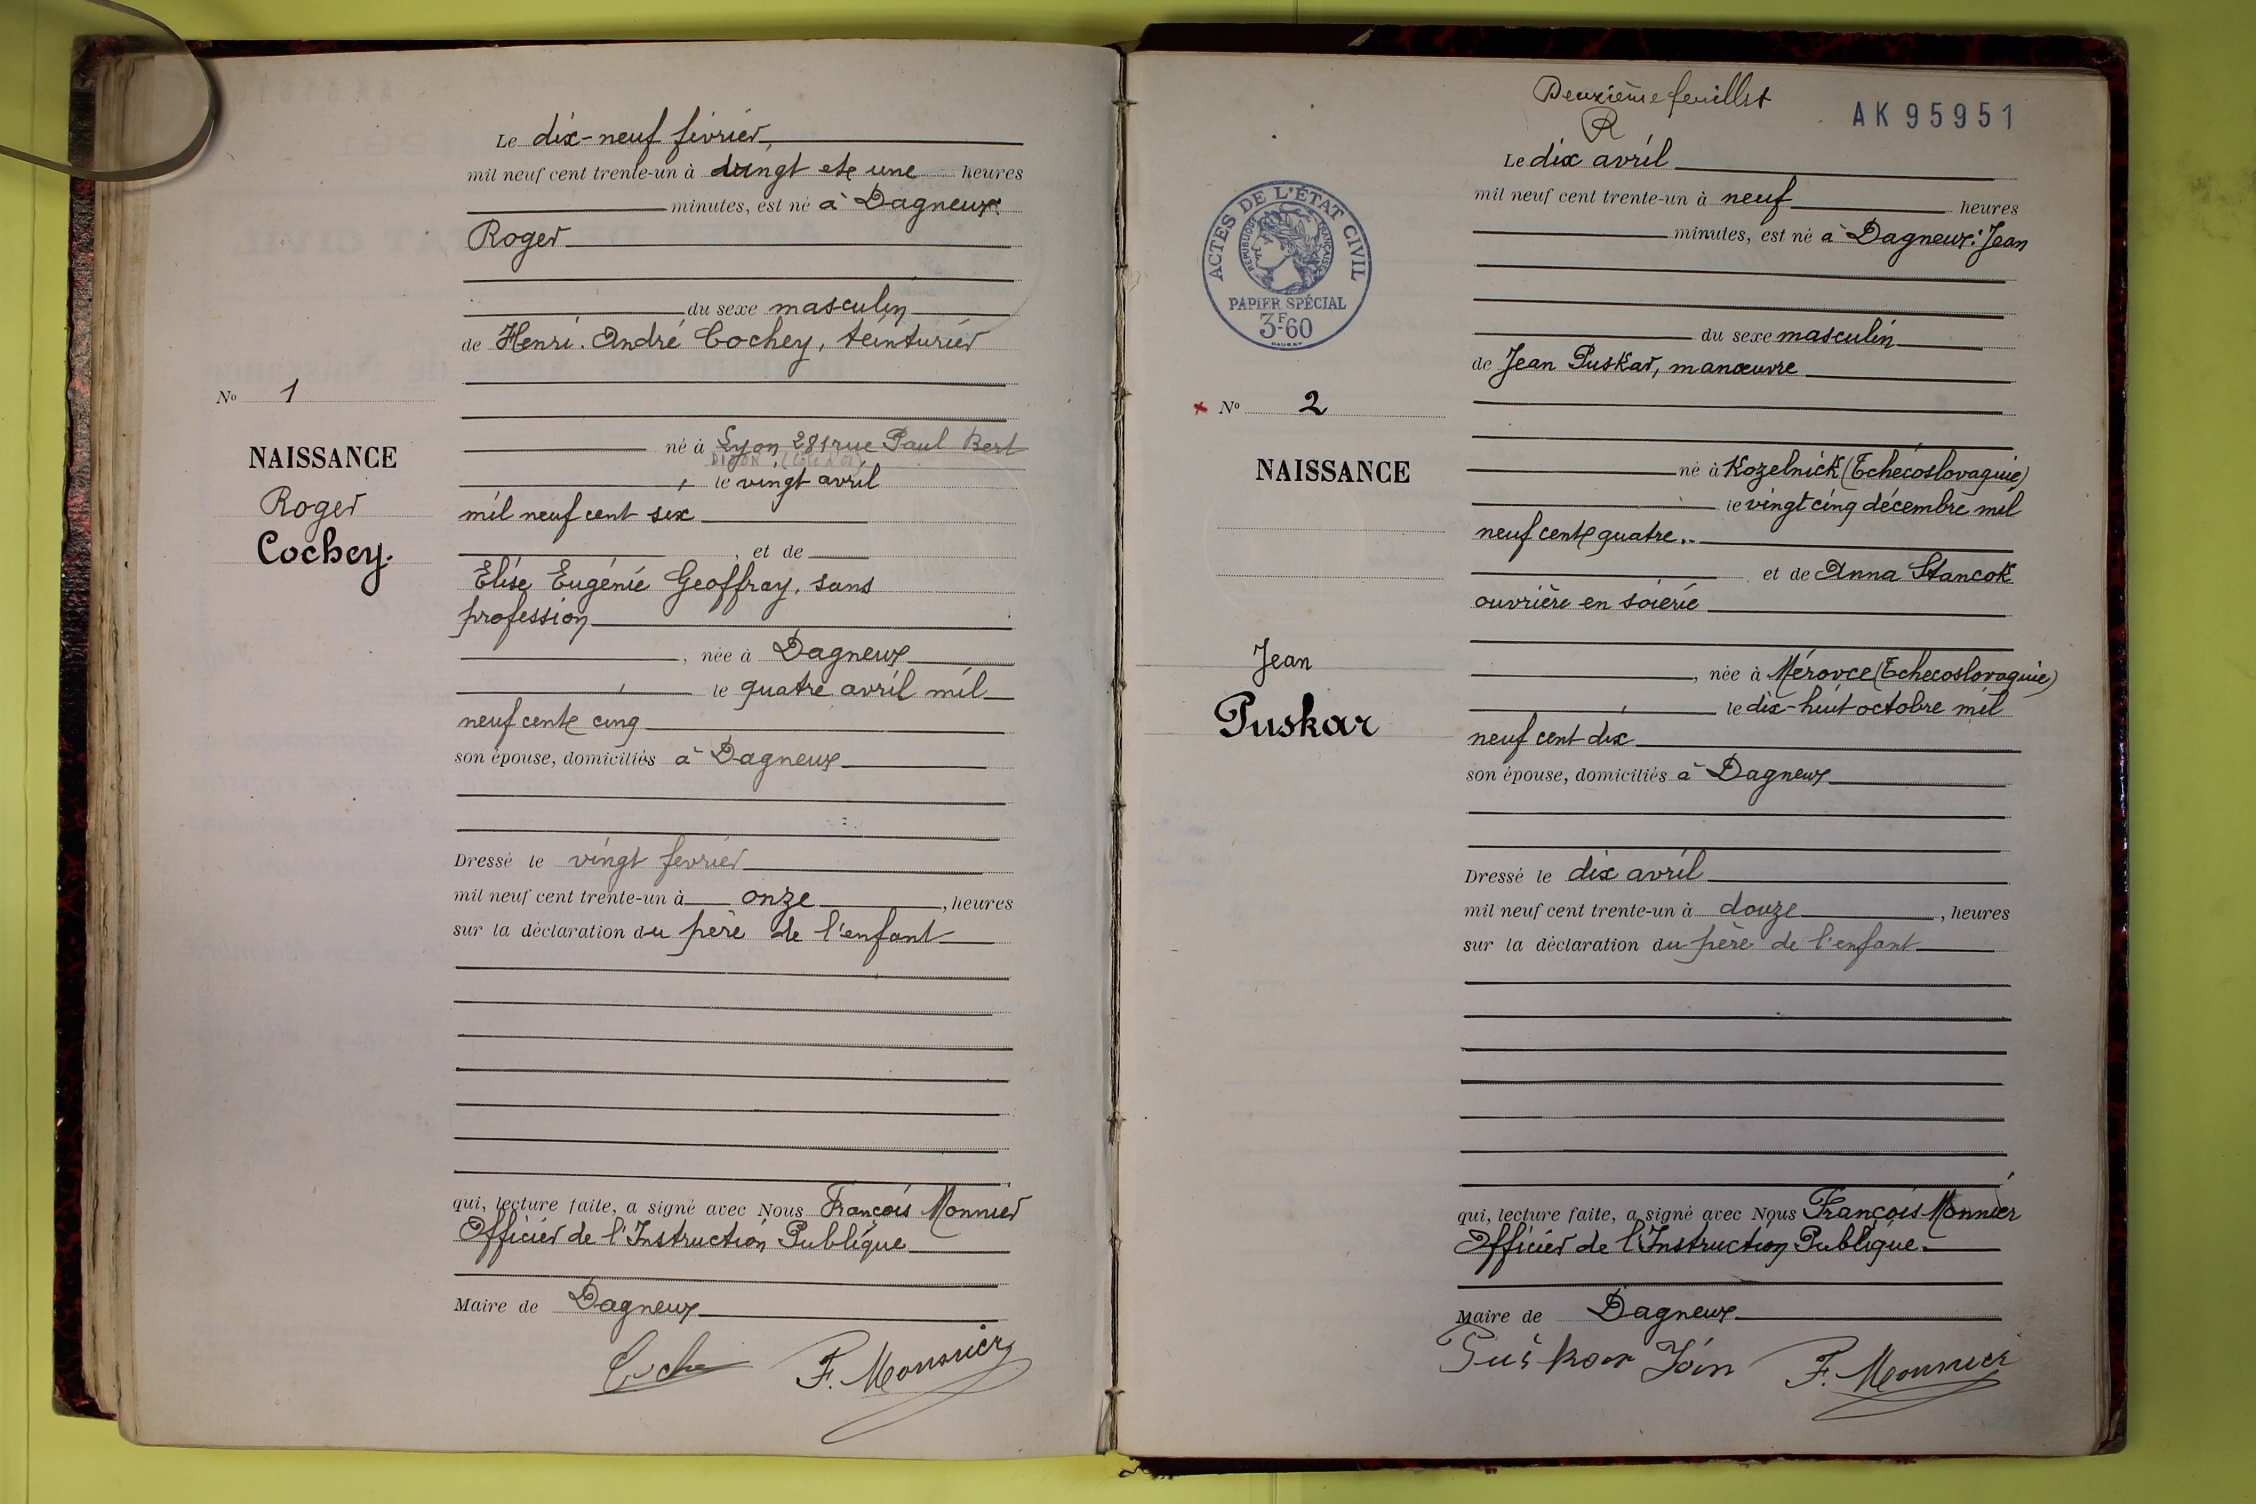 Le dix-neuf février
mil neuf cent trente-un à vingt et une heures
minutes, est né à Dagneux:
Roger
du sexe masculin
de Henri André Cochey, teinturier
né à Lyon 281 rue Paul Bert
DIJON (Côte d'Or)
, le vingt avril
mil neuf cent six
, et de
Elise Eugénie Geoffray, sans
profession
, née à Dagneux
, le quatre avril mil
neuf cent cinq
son épouse, domiciliés à Dagneux
Dressé le vingt fevrier
mil neuf cent trente-un à onze, heures
sur la déclaration du père de l'enfant
qui, lecture faite, a signé avec Nous François Monnier
Officier de l'Instruction Publique
Maire de Dagneux
F. Monnier
No 1
NAISSANCE
Roger
Cochey.
Deuxième feuillet
R
AK95951
Le dix avril
mil neuf cent trente-un à neuf heures
minutes, est né à Dagneux: Jean
du sexe masculin
de Jean Puskar, manœuvre
né à Kozelnick (Tchécoslovaquie)
le vingt cinq décembre mil
neuf cent quatre..
et de Anna Stancok
ouvrière en soierie
, née à Mérovce (Tchecoslovaquie)
, le dix-huit octobre mil
neuf cent dix
son épouse, domiciliés à Dagneux
Dressé le dix avril
mil neuf cent trente-un à douze, heures
sur la déclaration du père de l'enfant
qui, lecture faite, a signé avec Nous François Monnier
Officier de l'Instruction Publique.
Maire de Dagneux
Puskar Ján F. Monnier
ACTES DE L'ÉTAT CIVIL
RÉPUBLIQUE FRANÇAISE
PAPIER SPÉCIAL
3F-60
No 2
NAISSANCE
Jean
Puskar